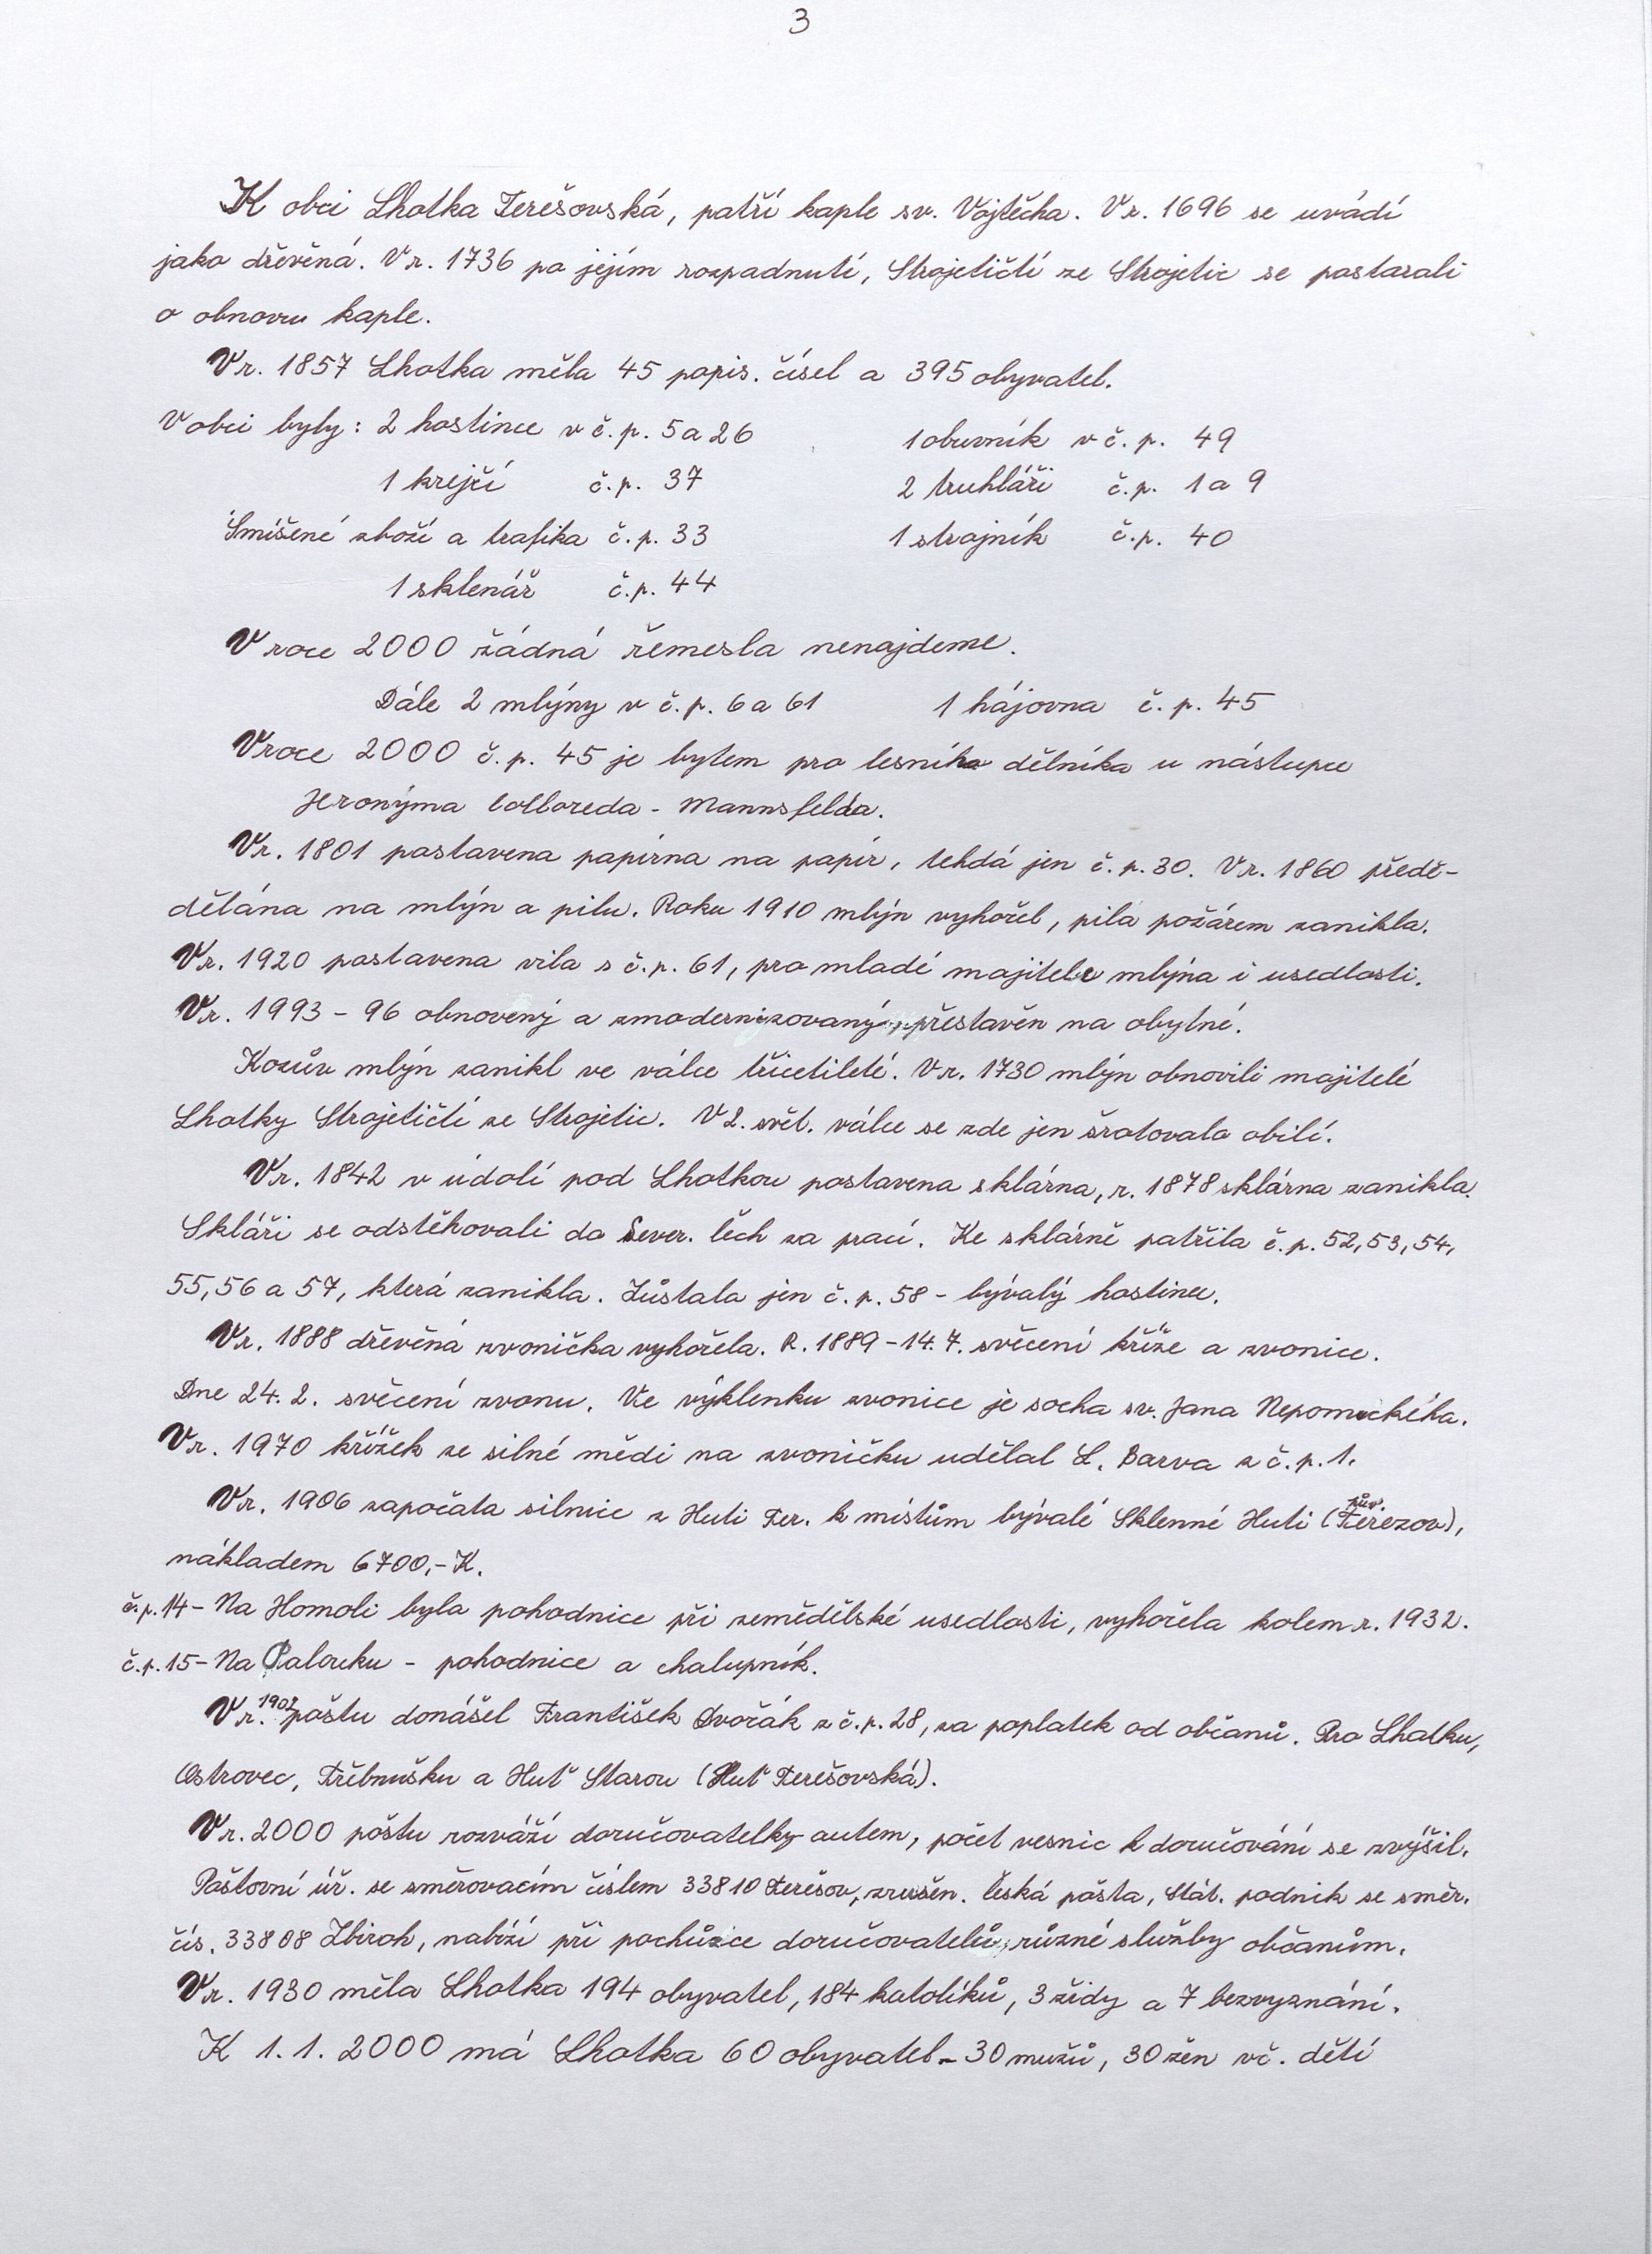 3
K obci Lhotka Terešovská, patří kaple sv. Vojtěcha. V r. 1696 se uvádí
jako dřevěná. V r. 1736 po jejím rozpadnutí, Strojetičtí ze Strojetic se postarali
o obnovu kaple.
V r. 1857 Lhotka měla 45 popis. čísel a 395 obyvatel.
V obci byly: 2 hostince v č.p. 5 a 26 1 obuvník v č.p. 49
1 krejčí č.p. 37 2 truhláři č.p. 1 a 9
Smíšené zboží a trafika č.p. 33 1 strojník č.p. 40
1 sklenář č.p. 44
V roce 2000 žádná řemesla nenajdeme.
Dále 2 mlýny v č.p. 6 a 61 1 hájovna č.p. 45
V roce 2000 č.p. 45 je bytem pro lesního dělníka u nástupce
Jeronýma Colloreda - Mannsfelda.
V r. 1801 postavena papírna na papír, tehdá jen č.p. 30. V r. 1860 předě-
dělána na mlýn a pilu. Roku 1910 mlýn vyhořel, pila požárem zanikla.
V r. 1920 postavena vila s č.p. 61, pro mladé majitele mlýna i usedlosti.
V r. 1993 - 96 obnovený a zmodernizovaný, přestavěn na obytné.
Kozův mlýn zanikl ve válce třicetileté. V r. 1730 mlýn obnovili majitelé
Lhotky Strojetičtí ze Strojetic. V 2. svět. válce se zde jen šrotovalo obilí.
V r. 1842 v údolí pod Lhotkou postavena sklárna, r. 1878 sklárna zanikla.
Skláři se odstěhovali do Sever. Čech za prací. Ke sklárně patřila č.p. 52, 53, 54,
55, 56 a 57, která zanikla. Zůstala jen č.p. 58 - bývalý hostinec.
V r. 1888 dřevěná zvonička vyhořela. R. 1889 - 14. 7. svěcení kříže a zvonice.
Dne 24. 2. svěcení zvonu. Ve výklenku zvonice je socha sv. Jana Nepomuckého.
V r. 1970 křížek ze silné mědi na zvoničku udělal L. Barva z č.p. 1.
V r. 1906 započata silnice z Huti Ter. k místům bývalé Sklenné Huti (pův. Terezov),
nákladem 6700,- K.
č.p. 14 - Na Homoli byla pohodnice při zemědělské usedlosti, vyhořela kolem r. 1932.
č.p. 15 - Na Palouku - pohodnice a chalupník.
V r. 1907 poštu donášel František Dvořák z č.p. 28, za poplatek od občanů. Pro Lhotku,
Ostrovec, Třebnušku a Huť Starou (Huť Terešovská).
V r. 2000 poštu rozváží doručovatelky autem, počet vesnic k doručování se zvýšil.
Poštovní úř. se směrovacím číslem 33810 Terešov, zrušen. Česká pošta, Stát. podnik se směr.
čís. 33808 Zbiroh, nabízí při pochůzce doručovatelů, různé služby občanům.
V r. 1930 měla Lhotka 194 obyvatel, 184 katolíků, 3 židy a 7 bezvyznání.
K 1. 1. 2000 má Lhotka 60 obyvatel - 30 mužů, 30 žen vč. dětí